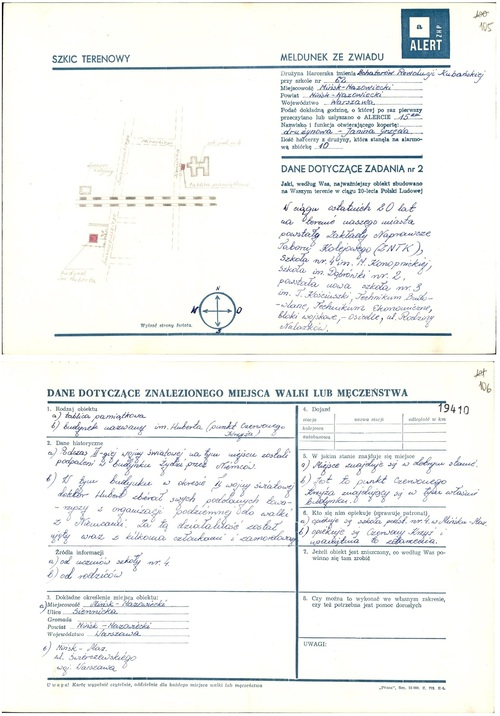 105
a
ALERT
ZHP
SZKIC TERENOWY
MELDUNEK ZE ZWIADU
Drużyna Harcerska imienia Bohaterów Rewolucji Kubańskiej
przy szkole nr 6a
Miejscowość Mińsk-Mazowiecki
Powiat Mińsk-Mazowiecki
Województwo Warszawa
Podać dokładną godzinę, o której po raz pierwszy
przeczytano lub usłyszano o ALERCIE 15
Nazwisko i funkcja otwierającego kopertę:
drużynowa - Janina
Ilość harcerzy z drużyny, która stanęła na alarmową
zbiórkę 10
DANE DOTYCZĄCE ZADANIA nr 2
Jaki, według Was, najważniejszy obiekt zbudowano
na Waszym terenie w ciągu 20-lecia Polski Ludowej
W ciągu ostatnich 20 lat
na terenie naszego miasta
powstały Zakłady Naprawcze
Taboru Kolejowego (ZNTK),
szkoła nr. 4 im. M. Konopnickiej,
szkoła im. Dąbrówki nr. 2,
powstała nowa szkoła nr. 3
im. T. Kościuszki, Technikum Budo-
wlane, Technikum Ekonomiczne,
bloki wojskowe, - osiedle, ul. Rodziny
Nalazków.
N
W
O
S
Wpisać strony świata.
106
DANE DOTYCZĄCE ZNALEZIONEGO MIEJSCA WALKI LUB MĘCZEŃSTWA
1. Rodzaj obiektu
a) tablica pamiątkowa
b) budynek nazwany im. Huberta (punkt Czerwonego
Krzyża)
2. Dane historyczne
a) Podczas II-giej wojny światowej na tym miejscu zostali
podpaleni w budynku Żydzi przez Niemców.
b) W tym budynku w okresie II wojny światowej
doktór Hubert zbierał swych podwładnych towa-
rzyszy z organizacji podziemnej do walki
z Niemcami. Za tę działalność został
ujęty wraz z kilkoma członkami i zamordowany
Źródła informacji
a) od uczniów szkoły nr. 4.
b) od rodziców
3. Dokładne określenie miejsca obiektu:
a) Miejscowość Mińsk-Mazowiecki
Ulica Siennicka
Gromada
Powiat Mińsk-Mazowiecki
Województwo Warszawa
b) Mińsk-Maz.
ul. Świerczewskiego
woj. Warszawa
4. Dojazd
19410
stacja
nazwa stacji
odległość w km
kolejowa
autobusowa
5. W jakim stanie znajduje się miejsce
a) Miejsce znajduje się w dobrym stanie.
b) Jest to punkt Czerwonego
Krzyża znajdujący się w tym właśnie
budynku.
6. Kto się nim opiekuje (sprawuje patronat)
a) opiekuje się szkoła podst. nr. 4 w Mińsku-Maz.
b) opiekuje się Czerwony Krzyż i
7. Jeżeli obiekt jest zniszczony, co według Was po-
winno się tam zrobić
8. Czy można to wykonać we własnym zakresie,
czy też potrzebna jest pomoc dorosłych
UWAGI:
Uwaga! Kartę wypełnić czytelnie, oddzielnie dla każdego miejsca walki lub męczeństwa